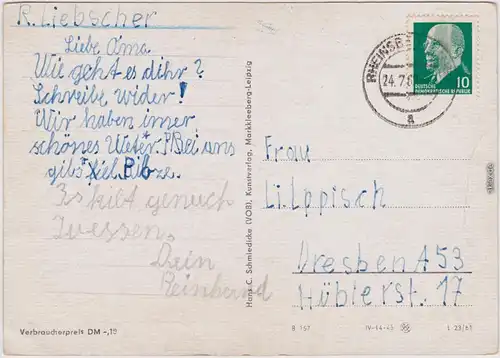 R. Liebscher
Liebe Oma.
Wie geht es dihr?
Schreibe wider!
Wir haben imer
schönes Weter. Bei uns
gibs viel Pilze.
Es kibt genuch
zuessen.
Dein
Reinhard
Verbraucherpreis DM -,15
Hans C. Schmiedicke (VOB), Kunstverlag, Markkleeberg-Leipzig
RHEINSB
24.7.6
a
10
DEUTSCHE
DEMOKRATISCHE REPUBLIK
Frau
Li. Lippisch
Dresben A 53
Hüblerst. 17
B 167 IV-14-45 L 23/61